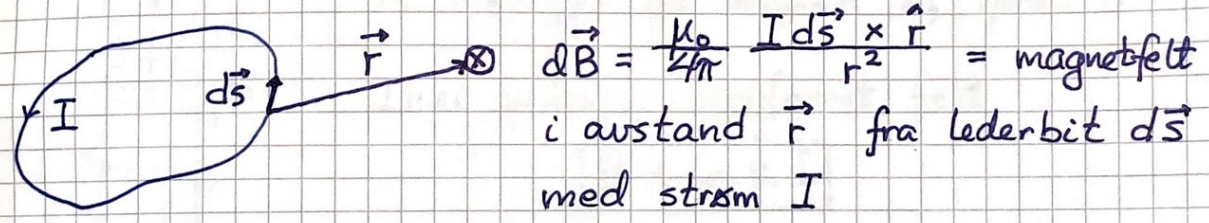 I d$\vec{s}$ $\vec{r}$ ⊗ d$\vec{B}$ = $\frac{\mu_0}{4\pi} \frac{I d\vec{s} \times \hat{r}}{r^2}$ = magnetfelt
i avstand $\vec{r}$ fra lederbit d$\vec{s}$
med strøm I